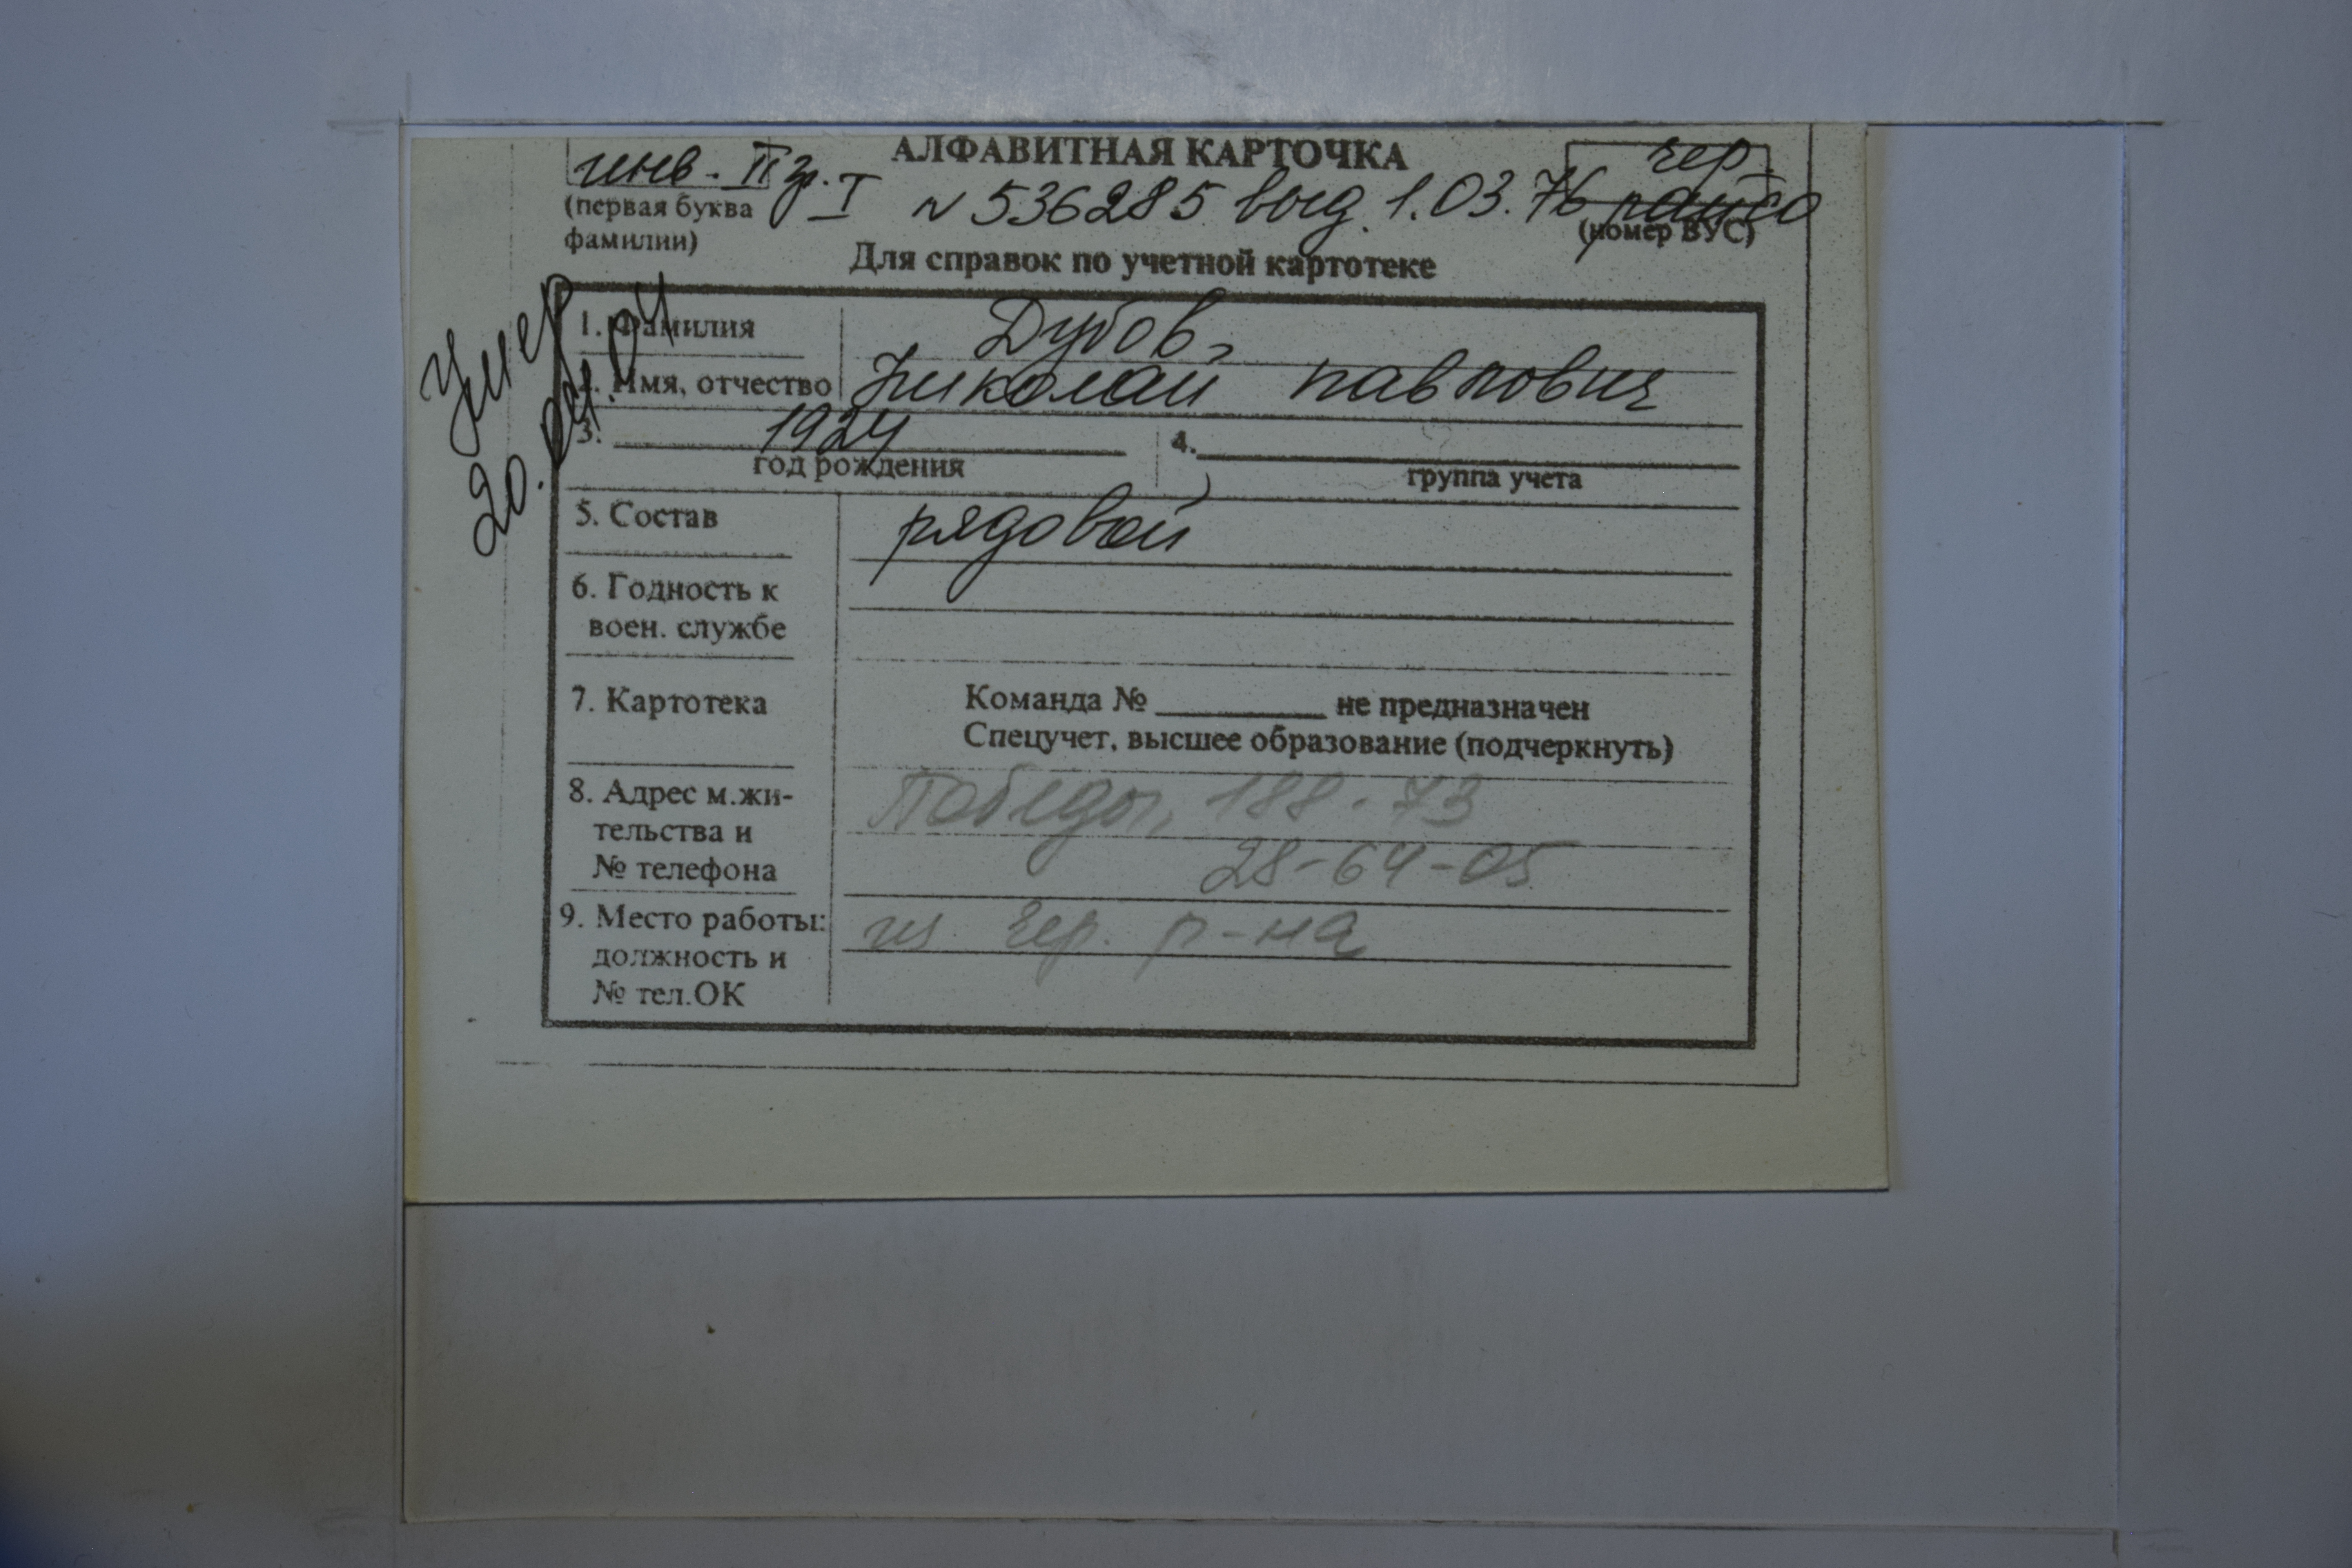 АЛФАВИТНАЯ КАРТОЧКА
инв. II гр. I № 536285 выд. 1.03.76 чер.
(первая буква фамилии)
(номер ВУС)
Для справок по учетной картотеке
Умер
20.04.04
1. Фамилия Дубов,
2. Имя, отчество Николай Павлович
3. 1924 4.
год рождения группа учета
5. Состав рядовой
6. Годность к
воен. службе
7. Картотека Команда № ________ не предназначен
Спецучет, высшее образование (подчеркнуть)
8. Адрес м.жи- Победы, 188-73
тельства и
№ телефона 28-64-05
9. Место работы: из чер. р-на
должность и
№ тел.ОК